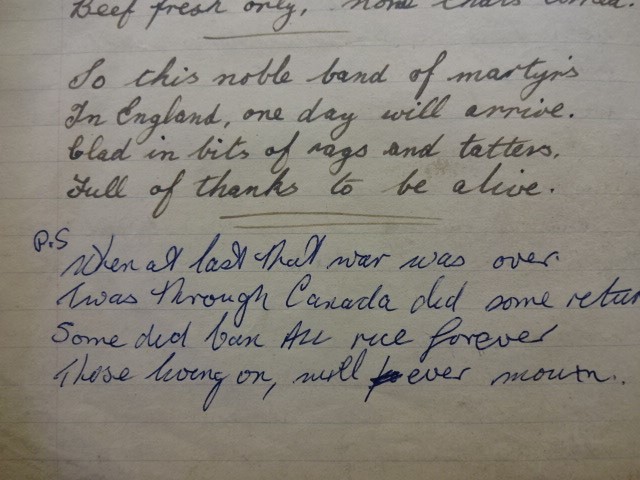 Beef fresh only,
So this noble band of martyrs
In England, one day will arrive.
Clad in bits of rags and tatters,
Full of thanks to be alive.
P.S
When at last that war was over
Twas through Canada did some retur
Some did ban All rice forever
Those living on, will ever mourn.